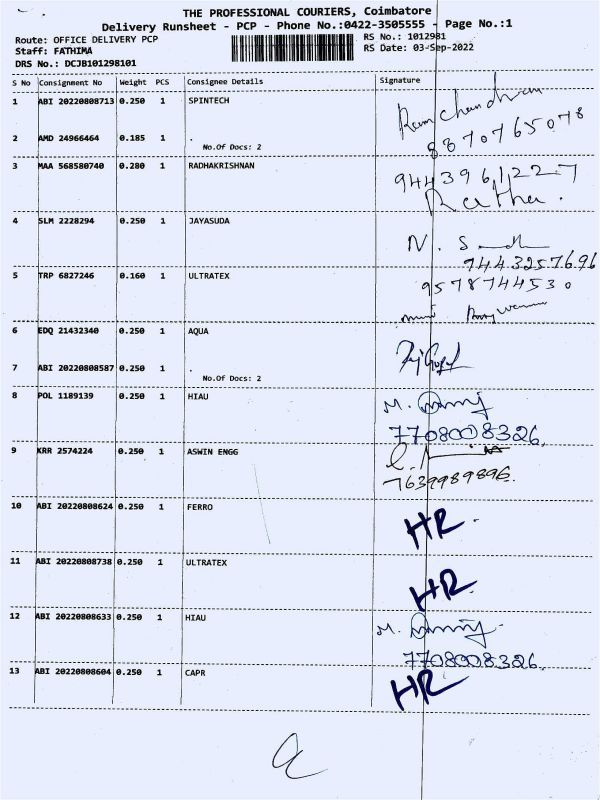 THE PROFESSIONAL COURIERS, Coimbatore
Delivery Runsheet - PCP - Phone No.:0422-3505555 - Page No.:1
Route: OFFICE DELIVERY PCP
RS No.: 1012981
Staff: FATHIMA
RS Date: 03-Sep-2022
DRS No.: DCJB101298101
S No Consignment No Weight PCS Consignee Details Signature
1 ABI 20220808713 0.250 1 SPINTECH Ramchandran
8870765078
2 AMD 24966464 0.185 1 .
No.Of Docs: 2
3 MAA 568580740 0.280 1 RADHAKRISHNAN 9443961227
Ratha.
4 SLM 2228294 0.250 1 JAYASUDA N.
9443257696
5 TRP 6827246 0.160 1 ULTRATEX 9578744530
6 EDQ 21432340 0.250 1 AQUA
7 ABI 20220808587 0.250 1 .
No.Of Docs: 2
8 POL 1189139 0.250 1 HIAU M.
7708008326.
9 KRR 2574224 0.250 1 ASWIN ENGG
7639989896.
10 ABI 20220808624 0.250 1 FERRO HR.
11 ABI 20220808738 0.250 1 ULTRATEX HR.
12 ABI 20220808633 0.250 1 HIAU M.
7708008326.
13 ABI 20220808604 0.250 1 CAPR HR